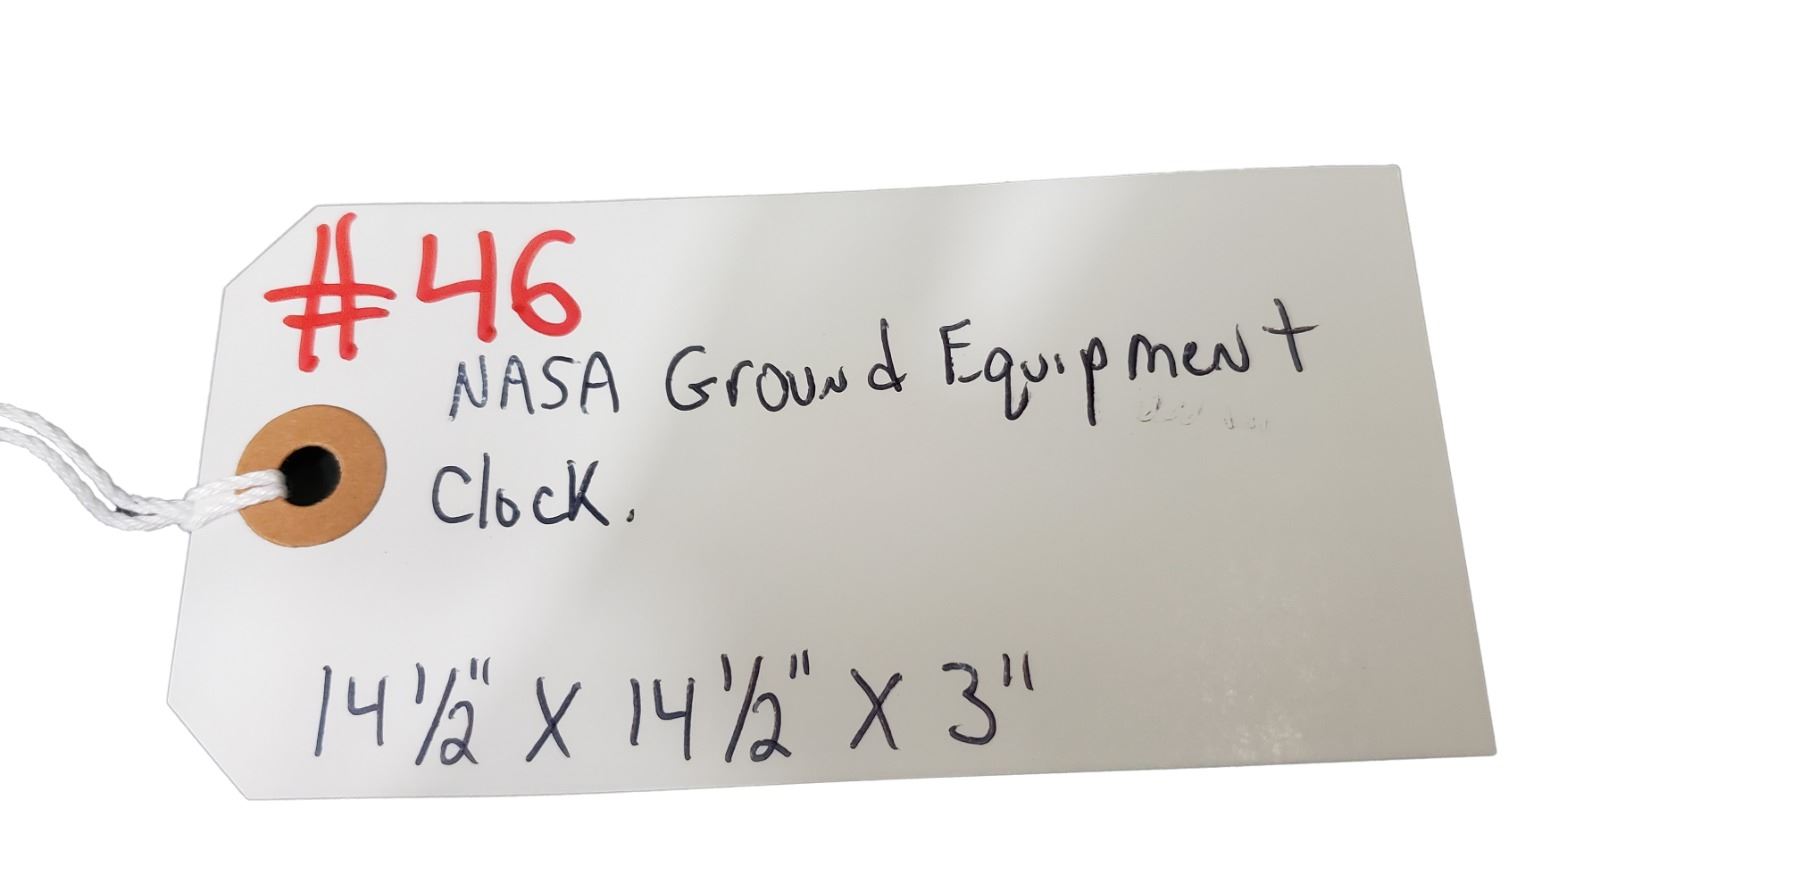 #46
NASA Ground Equipment
Clock.
14 1/2" X 14 1/2" X 3"